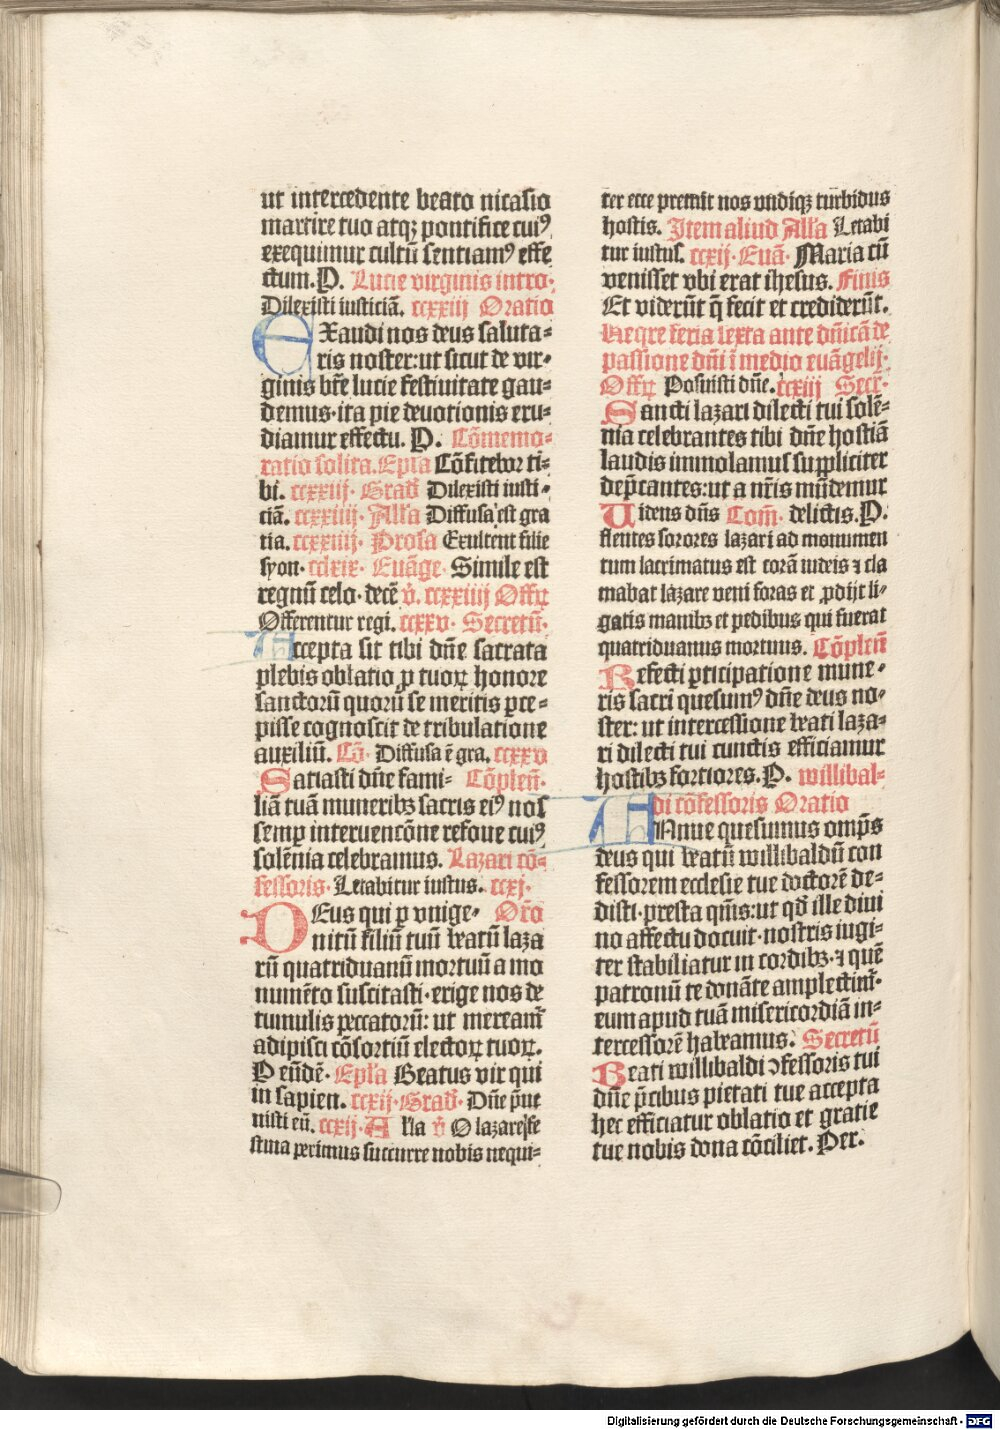 ut intercedente beato nicasio
martire tuo atqꝫ pontifice cuiꝰ
exequimur cultū sentiamꝰ effe
ctum. P. Lucie virginis intro.
Dilexisti iusticiā. ccxxiij Oratio
EXaudi nos deus saluta-
ris noster: ut sicut de vir-
ginis bīe lucie festiuitate gau-
demus. ita pie deuotionis eru-
diamur effectu. P. Cōmemo-
ratio solita. Epl'a Cōfitebor ti-
bi. ccxxiij. Grad' Dilexisti iusti-
ciā. ccxxiiij. All'a Diffusa est gra
tia. ccxxiiij. Prosa Exultent filie
syon. ccxlix. Euāge. Simile est
regnū celo. decē v̊. ccxxiiij Offꝝ
Offerentur regi. ccxxv. Secretū.
Accepta sit tibi dn̄e sacrata
plebis oblatio ꝓ tuoꝝ honore
sanctorū quorū se meritis ꝑce-
pisse cognoscit de tribulatione
auxiliū. Cō. Diffusa ē gra. ccxxv
Satiasti dn̄e fami- Cōplen̄.
liā tuā muneribꝫ sacris eiꝰ nos
semꝑ interuencōne refoue cuiꝰ
solēnia celebramus. Lazari cō-
fessoris. Letabitur iustus. ccxj.
DEus qui ꝑ vnige- Or̄o
nitū filiū tuū beatū laza
rū quatriduanū mortuū a mo
numēto suscitasti. erige nos de
tumulis peccatorū: ut meream̄
adipisci cōsortiū electoꝝ tuoꝝ.
P eūdē. Epl'a Beatus vir qui
in sapien. ccxij. Grad'. Dn̄e p̄ue
nisti eū. ccxij. All'a v̊ O lazare
stina perimus succurre nobis nequi-
ter ecce premit nos vndiqꝫ turbidus
hostis. Item aliud All'a Letabi
tur iustus. ccxij. Euā. Maria cū
venisset vbi erat ihesus. Finis
Et viderūt q̄ fecit et crediderūt.
Reqre feria sexta ante dn̄icā de
passione dn̄i ī medio euāgelij.
Offꝝ Posuisti dn̄e. ccxiij Secr̄.
Sancti lazari dilecti tui solē-
nia celebrantes tibi dn̄e hostiā
laudis immolamus suppliciter
dep̄cantes: ut a nr̄is mūdemur
Uidens dn̄s Com̄. delictis. P.
flentes sorores lazari ad monumen
tum lacrimatus est corā iudeis ⁊ cla
mabat lazare veni foras et ꝓdijt li-
gatis manibꝫ et pedibus qui fuerat
quatriduanus mortuus. Cōplen̄
Refecti ꝑticipatione mune-
ris sacri quesumꝰ dn̄e deus no-
ster: ut intercessione beati laza-
ri dilecti tui cunctis efficiamur
hostibꝫ fortiores. P. willibal-
di cōfessoris Oratio
Annue quesumus omp̄s
deus qui beatū willibaldū con
fessorem ecclesie tue doctorē de-
disti. presta qm̄s: ut qd̄ ille diui
no affectu docuit. nostris iugi-
ter stabiliatur in cordibꝫ. ⁊ quē
patronū te donāte amplectim̄.
eum apud tuā misericordiā in-
tercessorē habeamus. Secretū
Beati willibaldi ꝯfessoris tui
dn̄e p̄cibus pietati tue accepta
hec efficiatur oblatio et gratie
tue nobis dona cōciliet. Per.
Digitalisierung gefördert durch die Deutsche Forschungsgemeinschaft - DFG